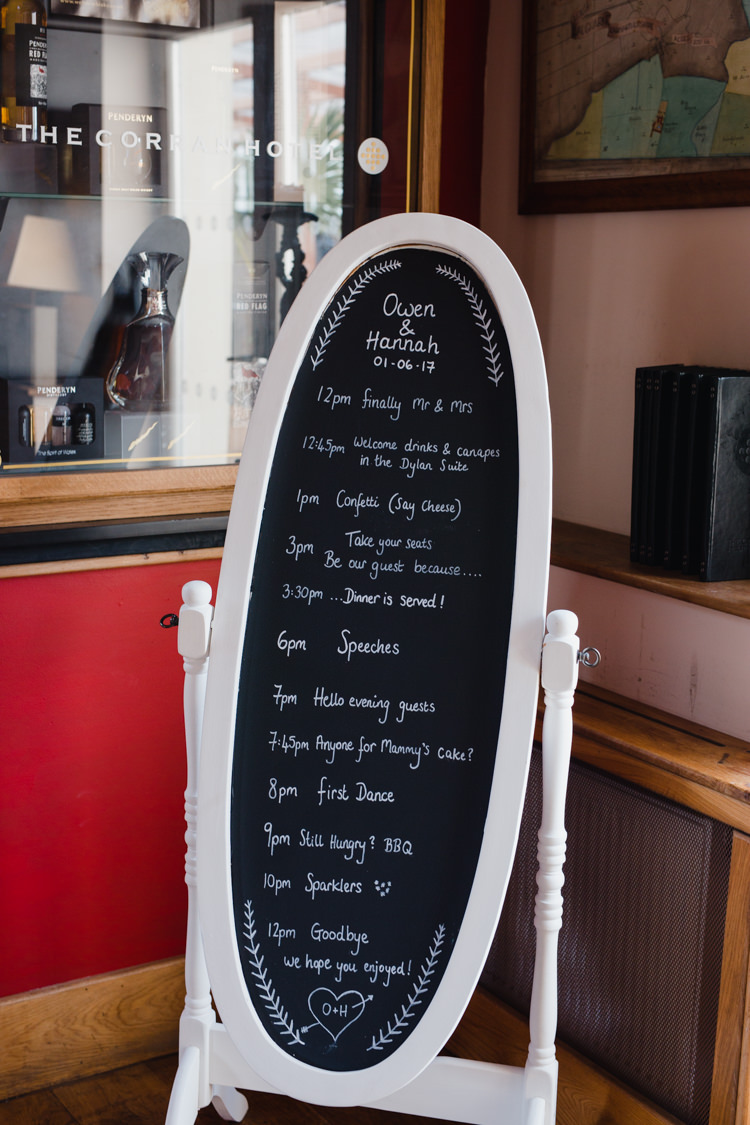 PENDERYN
RED FLAG
PENDERYN
PENDERYN
THE CORRAN HOTEL
PENDERYN
RED FLAG
PENDERYN
The Spirit of Wales
Owen
&
Hannah
01-06-17
12pm finally Mr & Mrs
12:45pm Welcome drinks & canapes
in the Dylan Suite
1pm Confetti (Say Cheese)
3pm Take your seats
Be our guest because....
3:30pm ...Dinner is served!
6pm Speeches
7pm Hello evening guests
7:45pm Anyone for Mammy's cake?
8pm first Dance
9pm Still Hungry? BBQ
10pm Sparklers
12pm Goodbye
we hope you enjoyed!
O+H